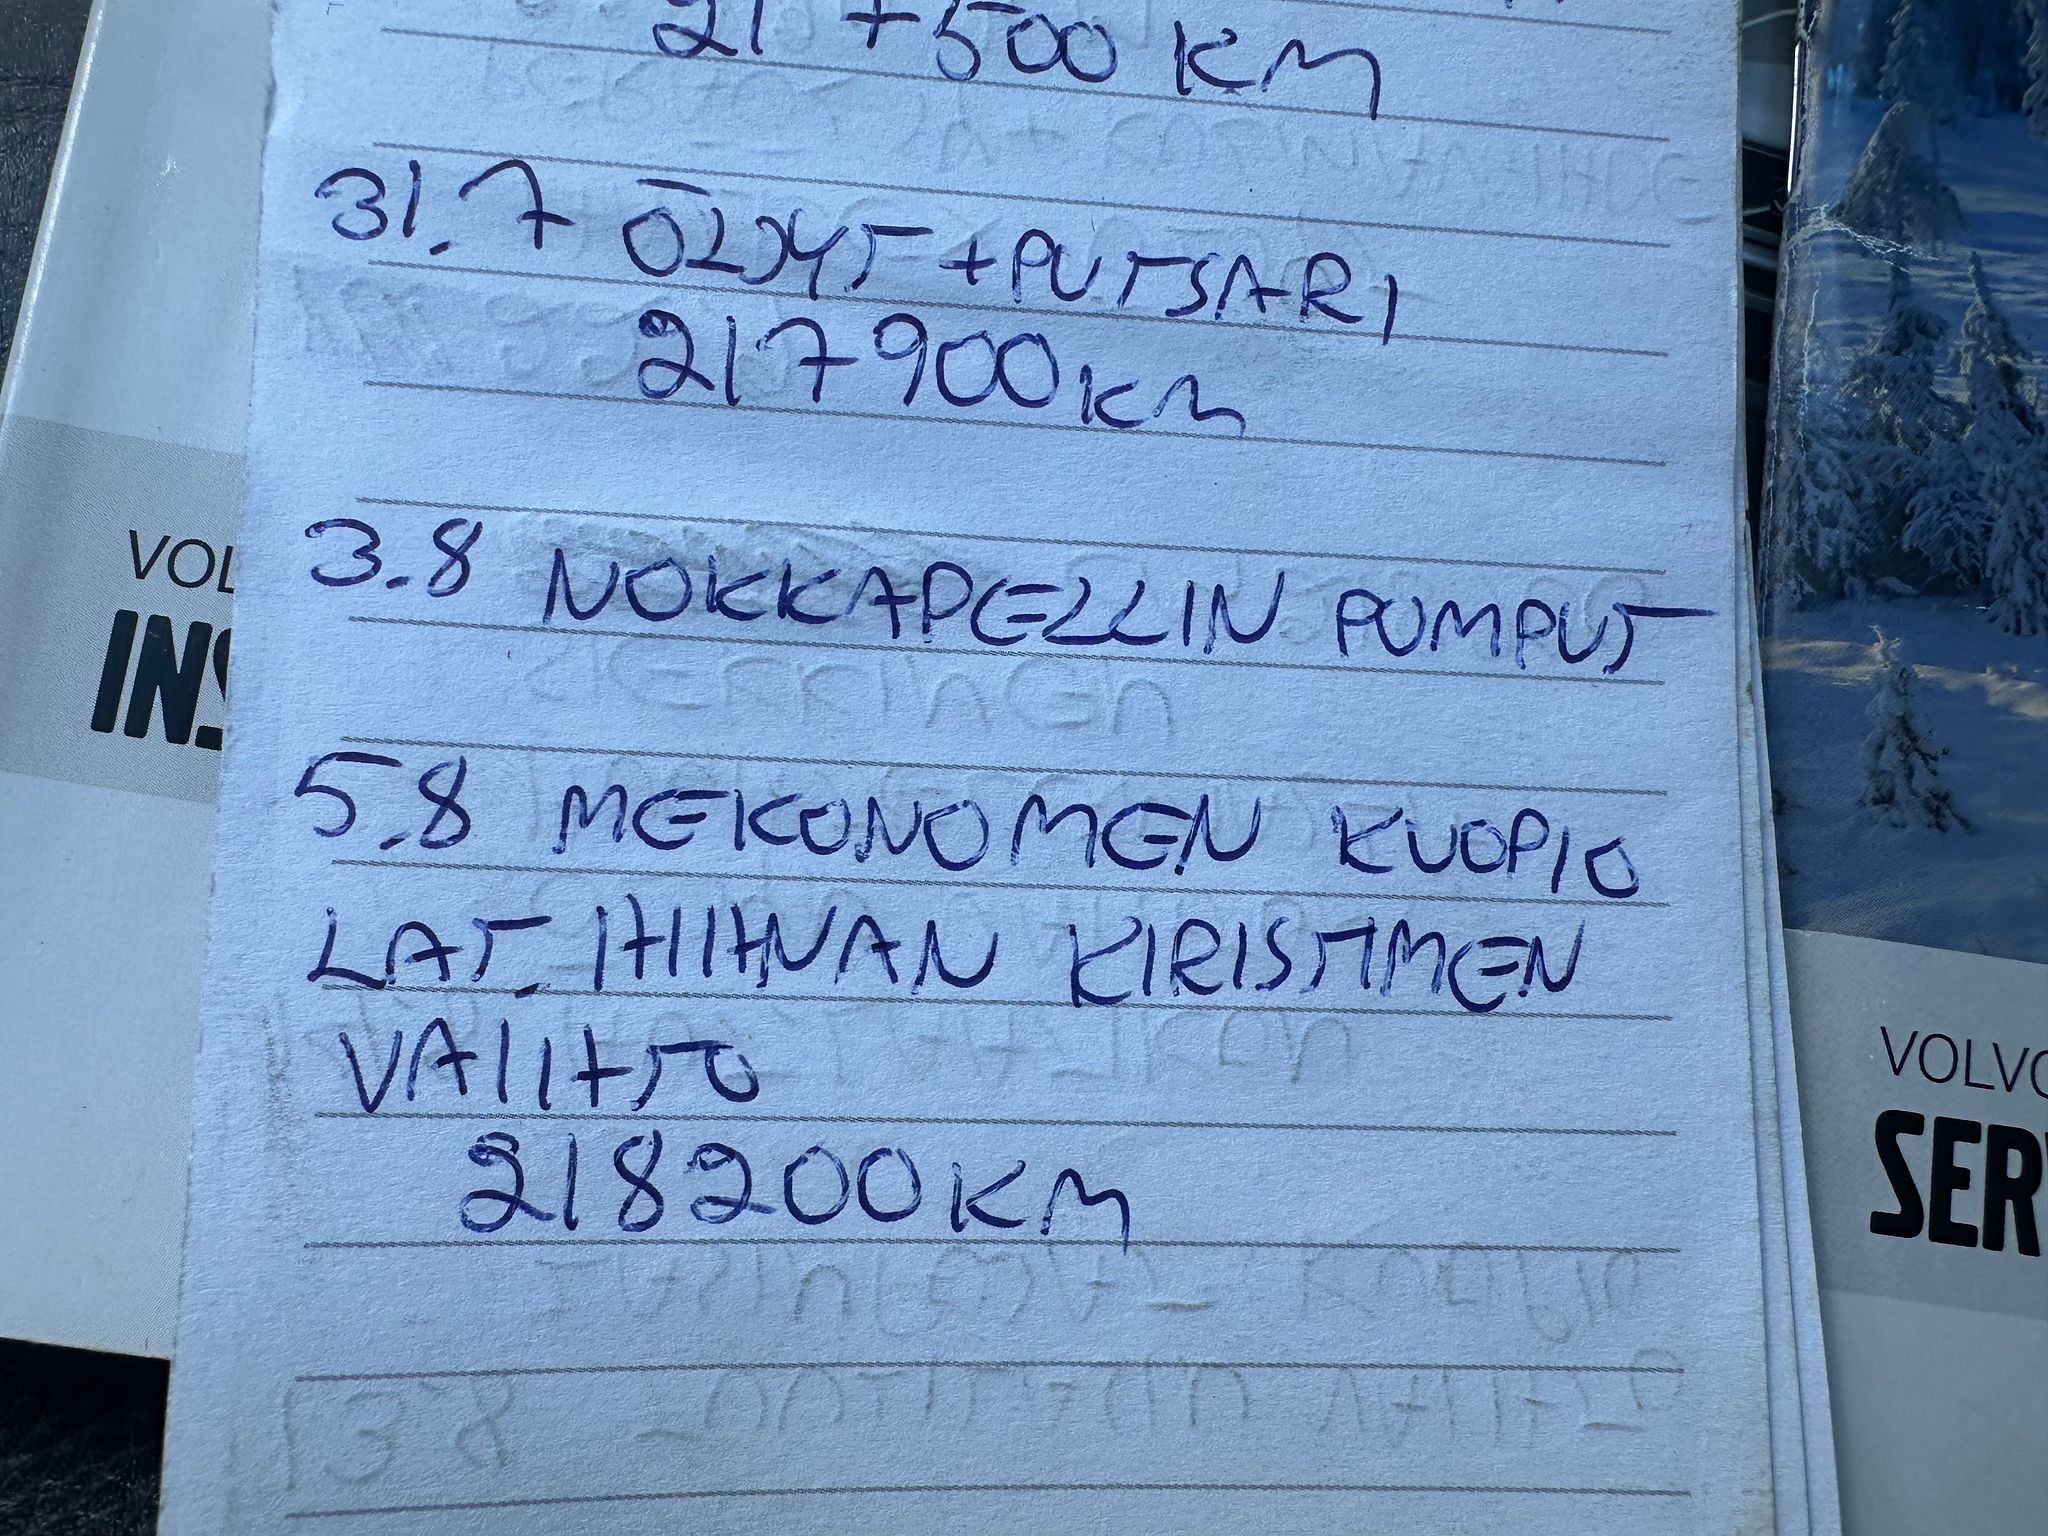 217500 KM
31.7 ÖLJYT + PUTSARI
217900 KM
3.8 NOKKAPELLIN PUMPUT
5.8 MEKONOMEN KUOPIO
LAT. HIHNAN KIRISTIMEN
VAIHTO
218200 KM
VOL
INS
VOLVO
SER